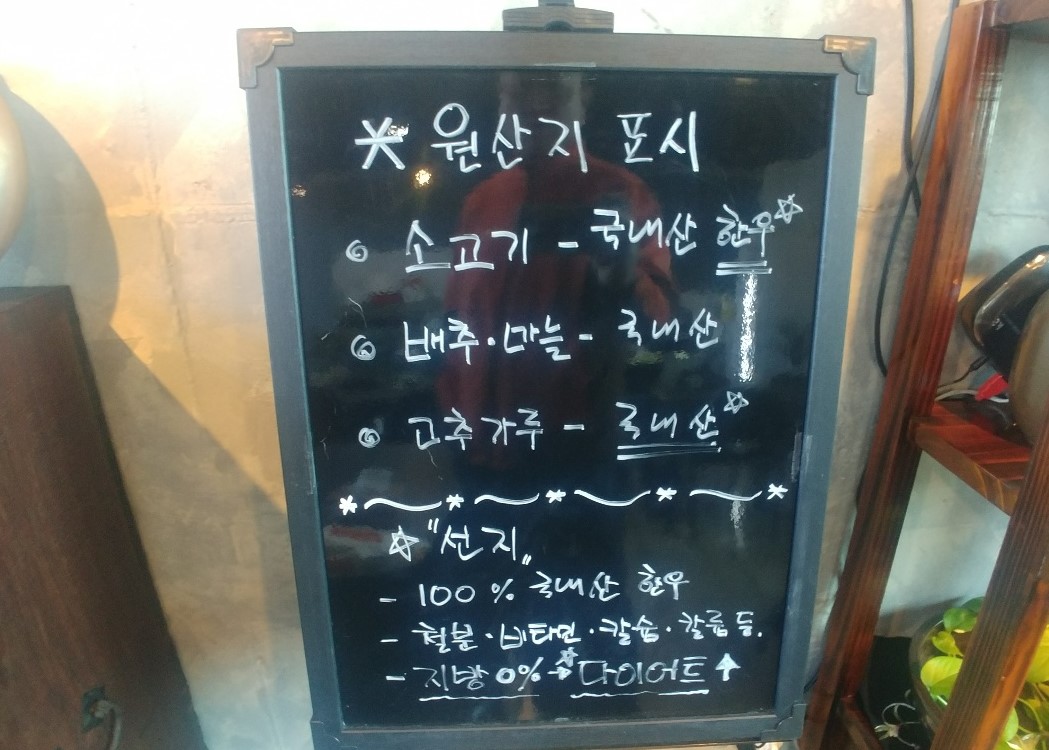 * 원산지 표시
◎ 소고기 - 국내산 한우☆
◎ 배추·마늘 - 국내산
◎ 고추가루 - 국내산☆
*~*~*~*~*
☆ "선지"
- 100% 국내산 한우
- 철분·비타민·칼슘·칼륨 등.
- 지방 0% → 다이어트 ↑